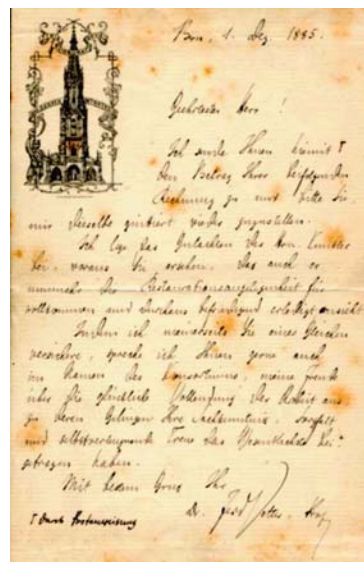 BERNER MÜNSTER
Bern, 1. Dez. 1885.
Geehrtester Herr!
Ich sende Ihnen hiermit †
den Betrag Ihrer beifolgenden
Rechnung zu und bitte Sie,
mir dieselbe quittiert wieder zuzustellen.
Ich lege das Gutachten des Hrn. Künstler
bei, woraus Sie ersehen, dass auch er
nunmehr die Restaurationsangelegenheit für
vollkommen und durchaus befriedigend erledigt ansieht
Indem ich meinerseits Sie eines Gleichen
versichere, spreche ich Ihnen gerne auch
im Namen des Konsortiums, meine Freude
über die glückliche Vollendung der Arbeit aus
zu deren Gelingen Ihre Sachkenntnis, Sorgfalt
und selbstverleugnende Treue das Wesentlichste bei-
getragen haben.
Mit bestem Gruss Ihr
Dr. Ferd. Vetter, Prof.
† durch Postanweisung